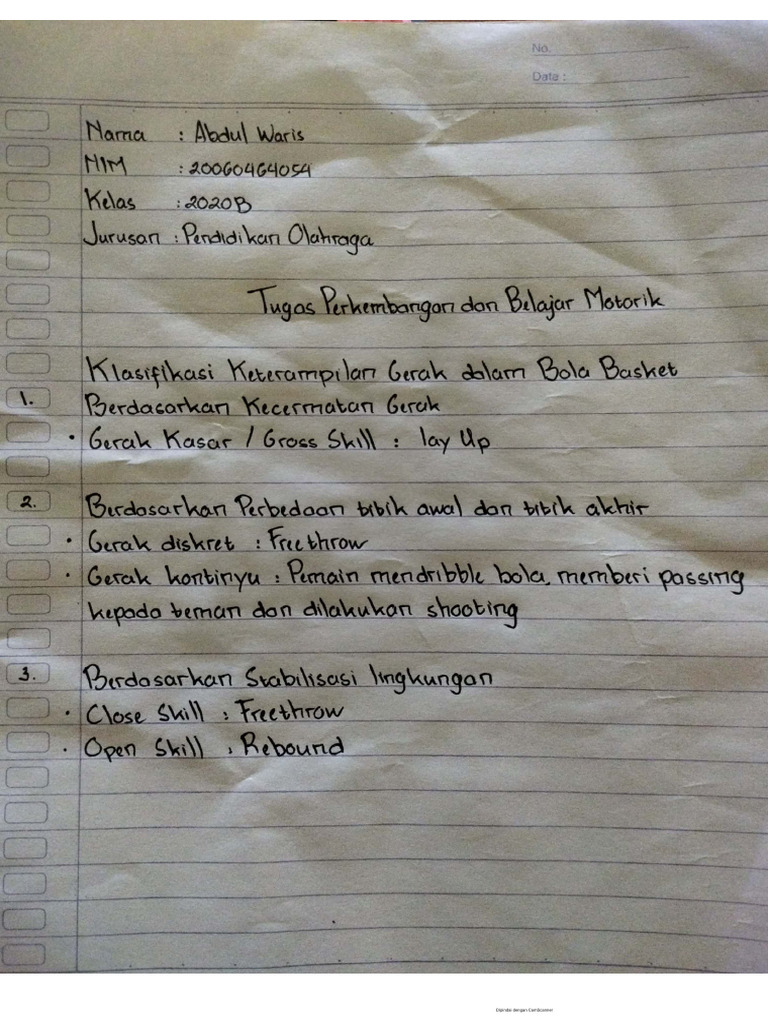 No.
Date :
Nama : Abdul Waris
NIM : 20060464054
Kelas : 2020B
Jurusan : Pendidikan Olahraga
Tugas Perkembangan dan Belajar Motorik
Klasifikasi Keterampilan Gerak dalam Bola Basket
1. Berdasarkan Kecermatan Gerak
• Gerak Kasar / Gross Skill : lay Up
2. Berdasarkan Perbedaan titik awal dan titik akhir
• Gerak diskret : Freethrow
• Gerak kontinyu : Pemain mendribble bola, memberi passing
kepada teman dan dilakukan shooting
3. Berdasarkan Stabilisasi lingkungan
• Close Skill : Freethrow
• Open Skill : Rebound
Dipindai dengan CamScanner